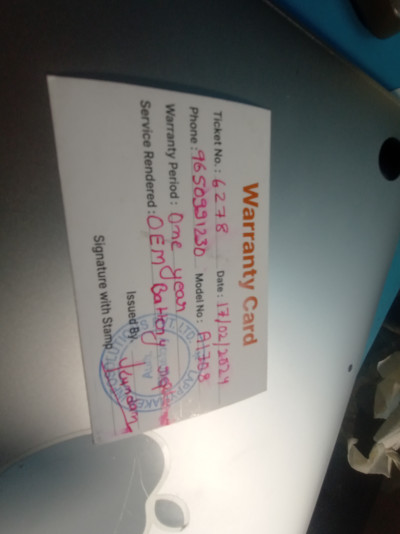 Warranty Card
Ticket No.: 6278 Date: 17/02/2024
Phone: 9650991230 Model No: A1708
Warranty Period: One year
Service Rendered: OEM Battery
Issued By
Signature with Stamp